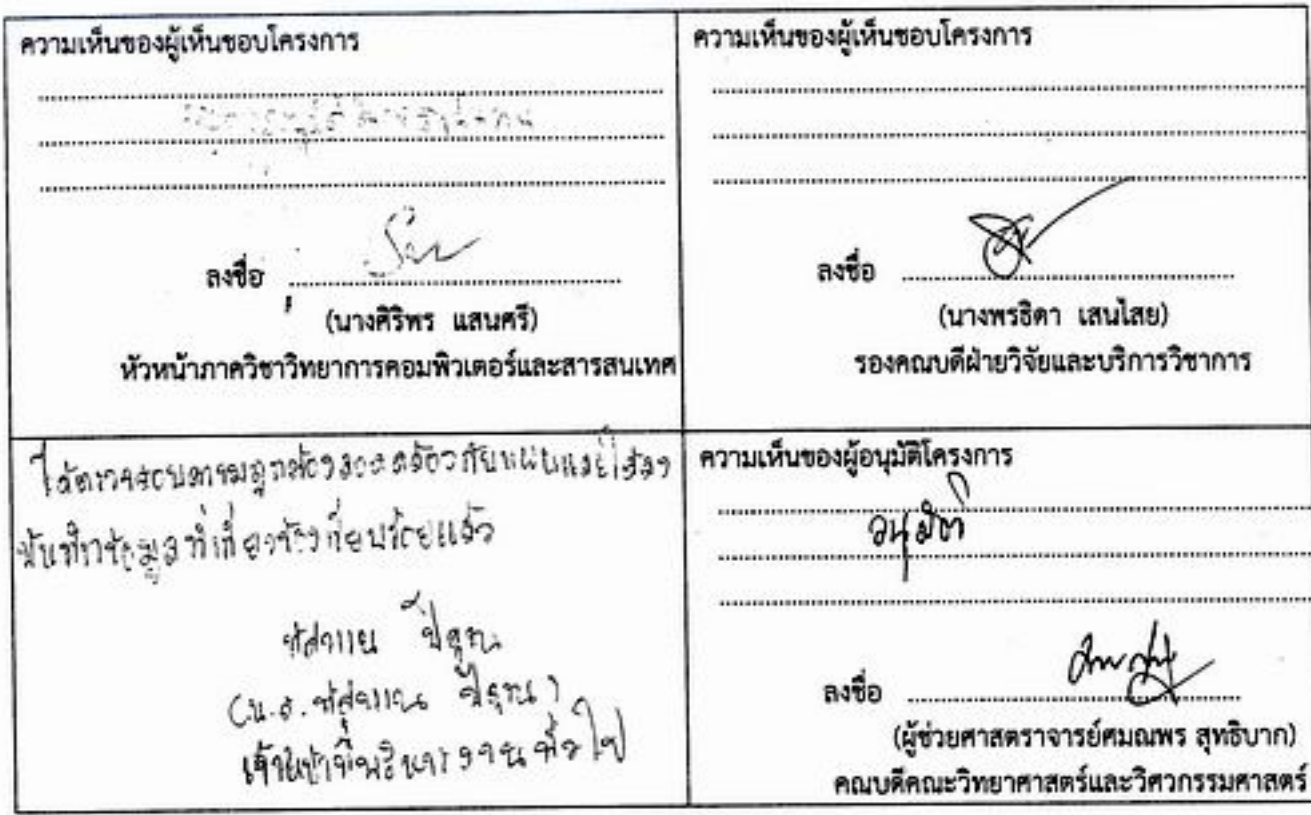 ความเห็นของผู้เห็นชอบโครงการ
ลงชื่อ
(นางศิริพร แสนศรี)
หัวหน้าภาควิชาวิทยาการคอมพิวเตอร์และสารสนเทศ
ความเห็นของผู้เห็นชอบโครงการ
ลงชื่อ
(นางพรธิดา เสนไสย)
รองคณบดีฝ่ายวิจัยและบริการวิชาการ
ได้ตรวจสอบความถูกต้องสอดคล้องกับแผนและได้ลง
บันทึกข้อมูลที่เกี่ยวข้องเรียบร้อยแล้ว
(น.ส.
เจ้าหน้าที่บริหารงานทั่วไป
ความเห็นของผู้อนุมัติโครงการ
อนุมัติ
ลงชื่อ
(ผู้ช่วยศาสตราจารย์ศมณพร สุทธิบาก)
คณบดีคณะวิทยาศาสตร์และวิศวกรรมศาสตร์